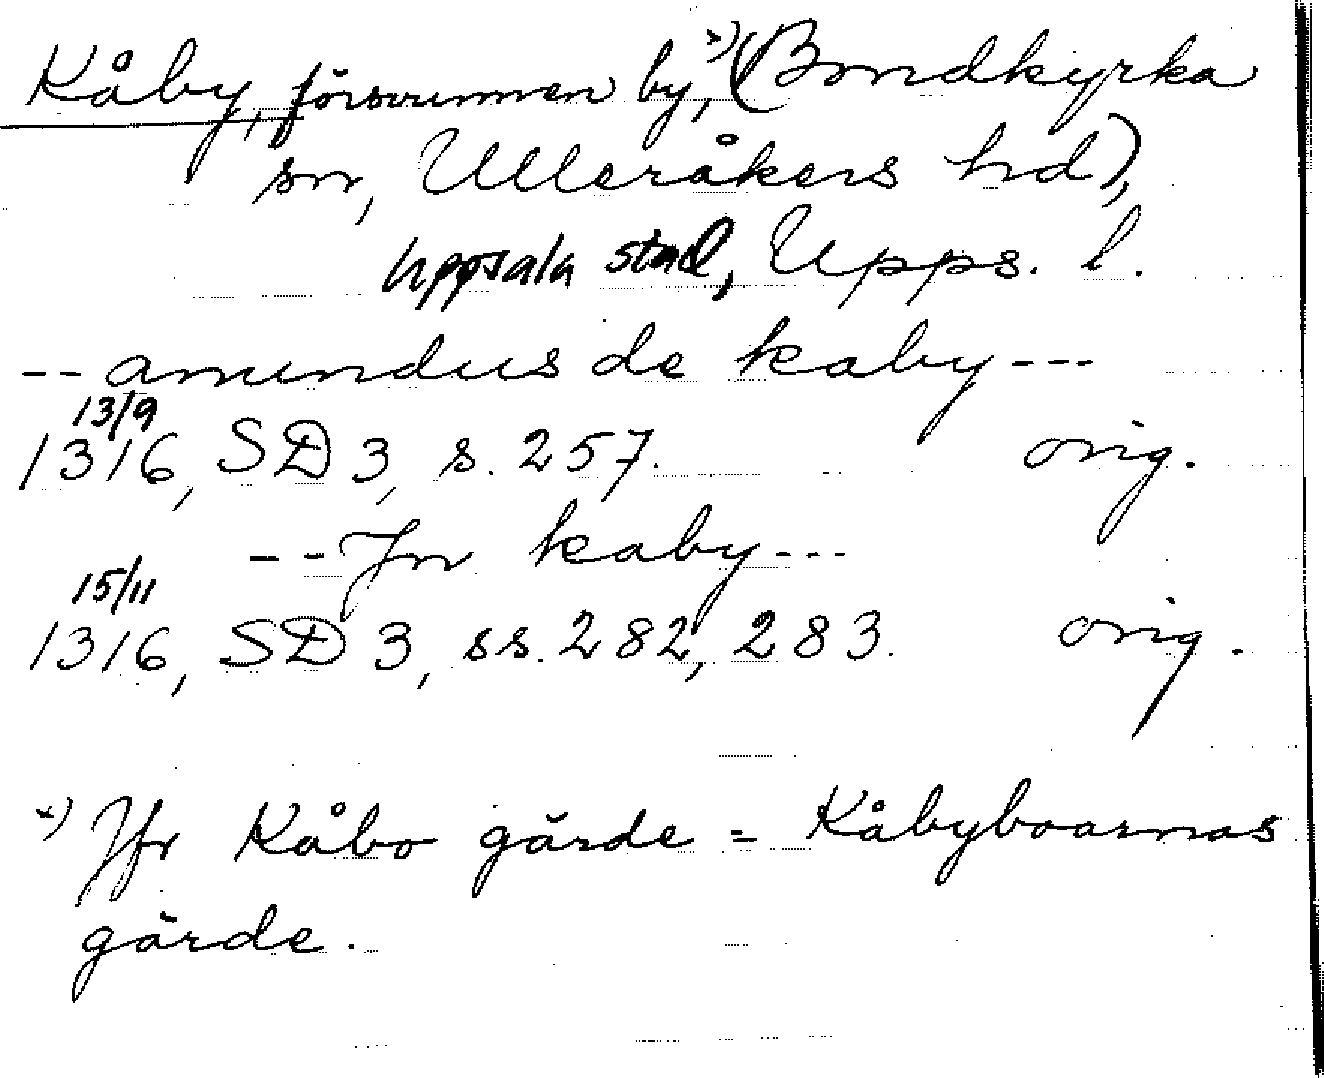 Kåby, försvunnen by, x) (Bondkyrka
sn, Ulleråkers hd),
Uppsala stad, Upps. l.
-- amundus de kaby ---
13/9
1316, SD 3, s. 257. orig.
-- Jn kaby ---
15/11
1316, SD 3, ss. 282, 283. orig.
x) Jfr Kåbo gärde = Kåbyboarnas
gärde.